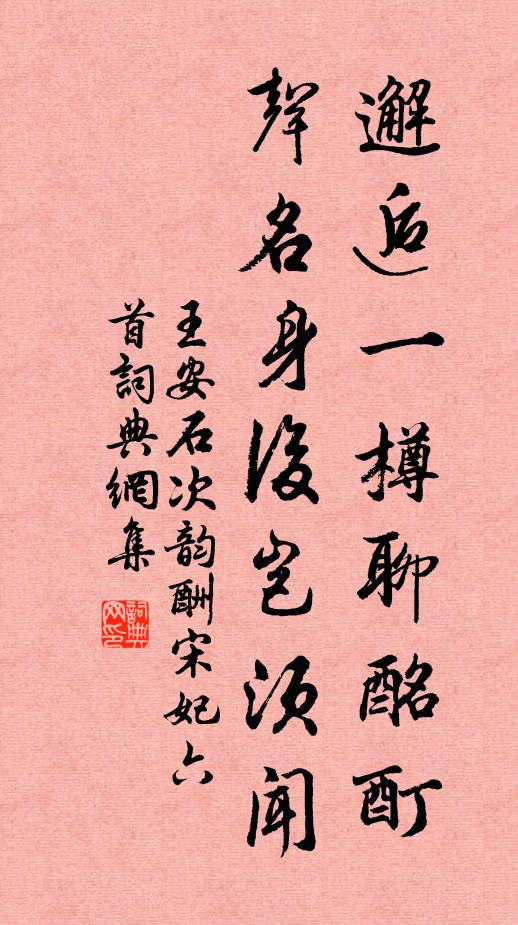 邂逅一樽聊酩酊
聲名身後豈須聞
王安石次韵酬宋妃六
首詞典網集
詞典網印